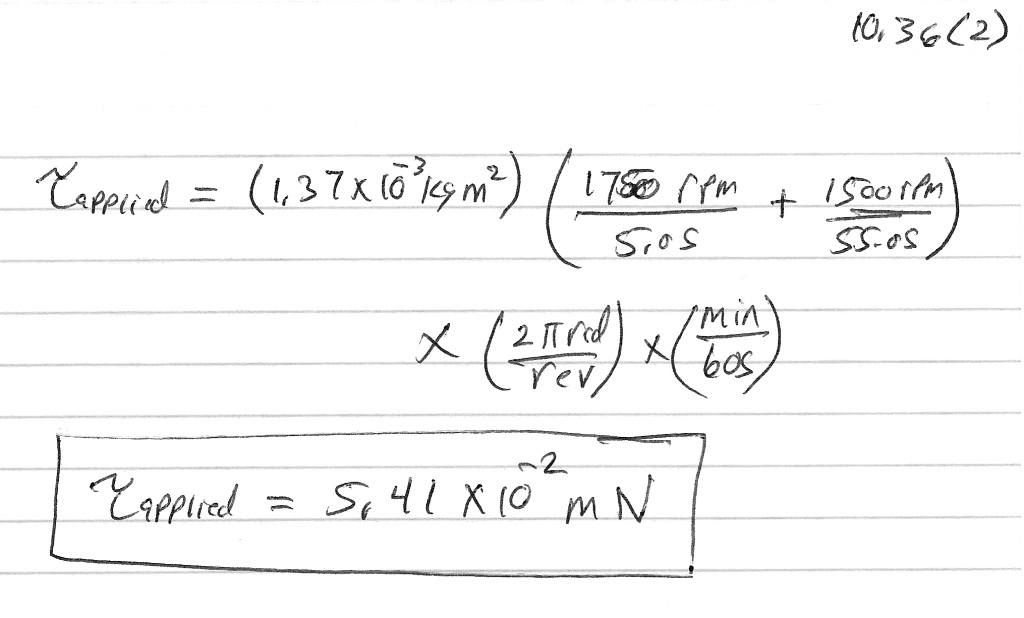 10.36(2)
τapplied = (1.37 x 10⁻³ kg m²) (1750 rpm / 5.0s + 1500 rpm / 55.0s)
x (2π rad / rev) x (min / 60s)
τapplied = 5.41 x 10⁻² m N